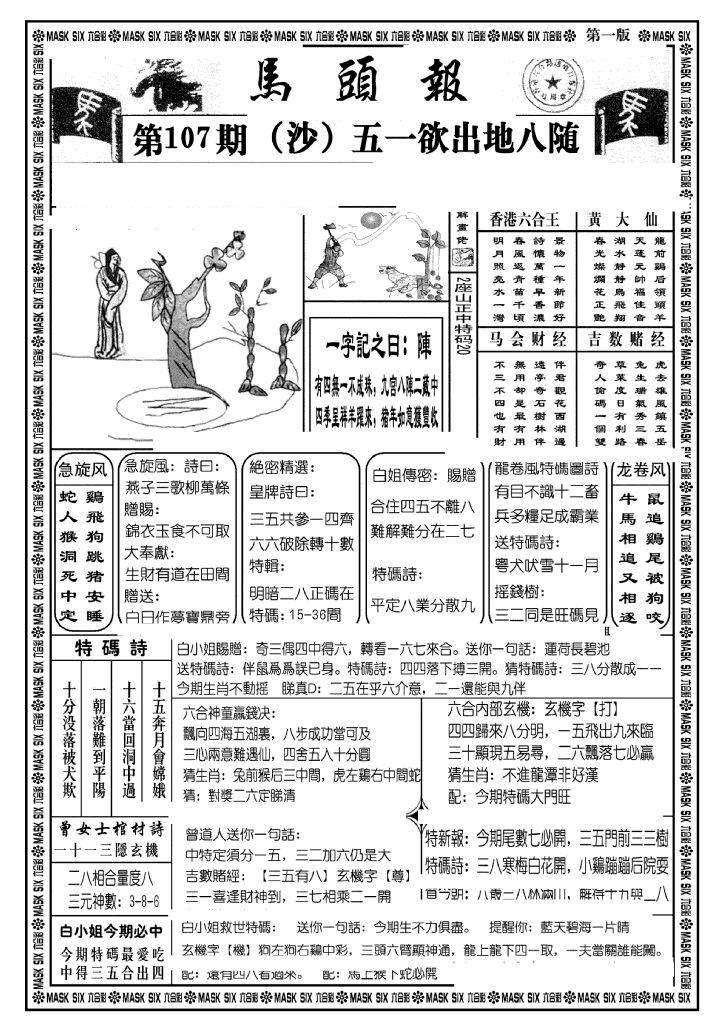 MASK SIX 六合彩
第一版
馬頭報
第107期（沙）五一欲出地八随
解畫佬
2座山正中特码20
一字記之曰：陣
有四無一不成殊，九宫八陣二藏中
四季呈祥羊躍來，猪年如意獲豐收
香港六合王
景物一年新節好
詩懷萬種早香濃
春風返青苗千頃
明月照亮水一灣
黄大仙
龍前鷄后領頭羊
天蓬元帥福佳音
湖水靜靜鳥飛翔
春光燦爛花正艷
马会财经
伴君觀花西湖邊
遠亭奇石樹林伴
無用却是最有用
不三不四也有財
吉数赌经
虎去雄風鎮五岳
兔生瑞氣秀三春
草菜度日有利路
奇人偷碼一個雙
急旋风
鷄飛狗跳猪安睡
蛇人猴洞死中定
急旋風：詩曰：
燕子三歌柳萬條
贈賜：
錦衣玉食不可取
大奉獻：
生財有道在田間
贈送：
白日作夢寶鼎旁
絶密精選：
皇牌詩曰：
三五共參一四齊
六六破除轉十數
特輯：
明暗二八正碼在
特碼：15-36間
白姐傳密：賜贈
合住四五不離八
難解難分在二七
特碼詩：
平定八業分散九
龍卷風特碼圖詩
有目不識十二畜
兵多糧足成霸業
送特碼詩：
粤犬吠雪十一月
摇錢樹：
三二同是旺碼見
龙卷风
鼠追鷄尾被狗咬
牛馬相追又相逐
特碼詩
十五奔月會嫦娥
十六當回洞中過
一朝落難到平陽
十分没落被犬欺
白小姐賜贈：奇三偶四中得六，轉看一六七來合。送你一句話：蓮荷長碧池
送特碼詩：伴鼠爲爲誤已身。特碼詩：四四落下搏三開。猜特碼詩：三八分散成一一
今期生肖不動摇　睇真D：二五在乎六介意，二一還能與九伴
六合神童贏錢决：
飄向四海五湖裏，八步成功當可及
三心兩意難遇仙，四舍五入十分圓
猜生肖：兔前猴后三中間，虎左鷄右中間蛇
猜：對獎二六定睇清
六合内部玄機：玄機字【打】
四四歸來八分明，一五飛出九來臨
三十顯現五易尋，二六飄落七必贏
猜生肖：不進龍潭非好漢
配：今期特碼大門旺
曾女士棺材詩
一十一三隱玄機
二八相合量度八
三元神數：3-8-6
曾道人送你一句話：
中特定須分一五，三二加六仍是大
吉數賭經：【三五有八】玄機字【尊】
三一喜逢財神到，三七相乘二一開
特新報：今期尾數七必開，三五門前三三樹
特碼詩：三八寒梅白花開，小鷄蹦蹦后院耍
白小姐今期必中
今期特碼最爱吃
中得三五合出四
白小姐救世特碼：　送你一句話：今期生不力俱盡。　提醒你：藍天碧海一片晴
玄機字【機】狗左狗右鷄中彩，三頭六臂顯神通，龍上龍下四一取，一夫當關誰能闖。
配：還有四八看過來。　配：馬上猴下蛇必開